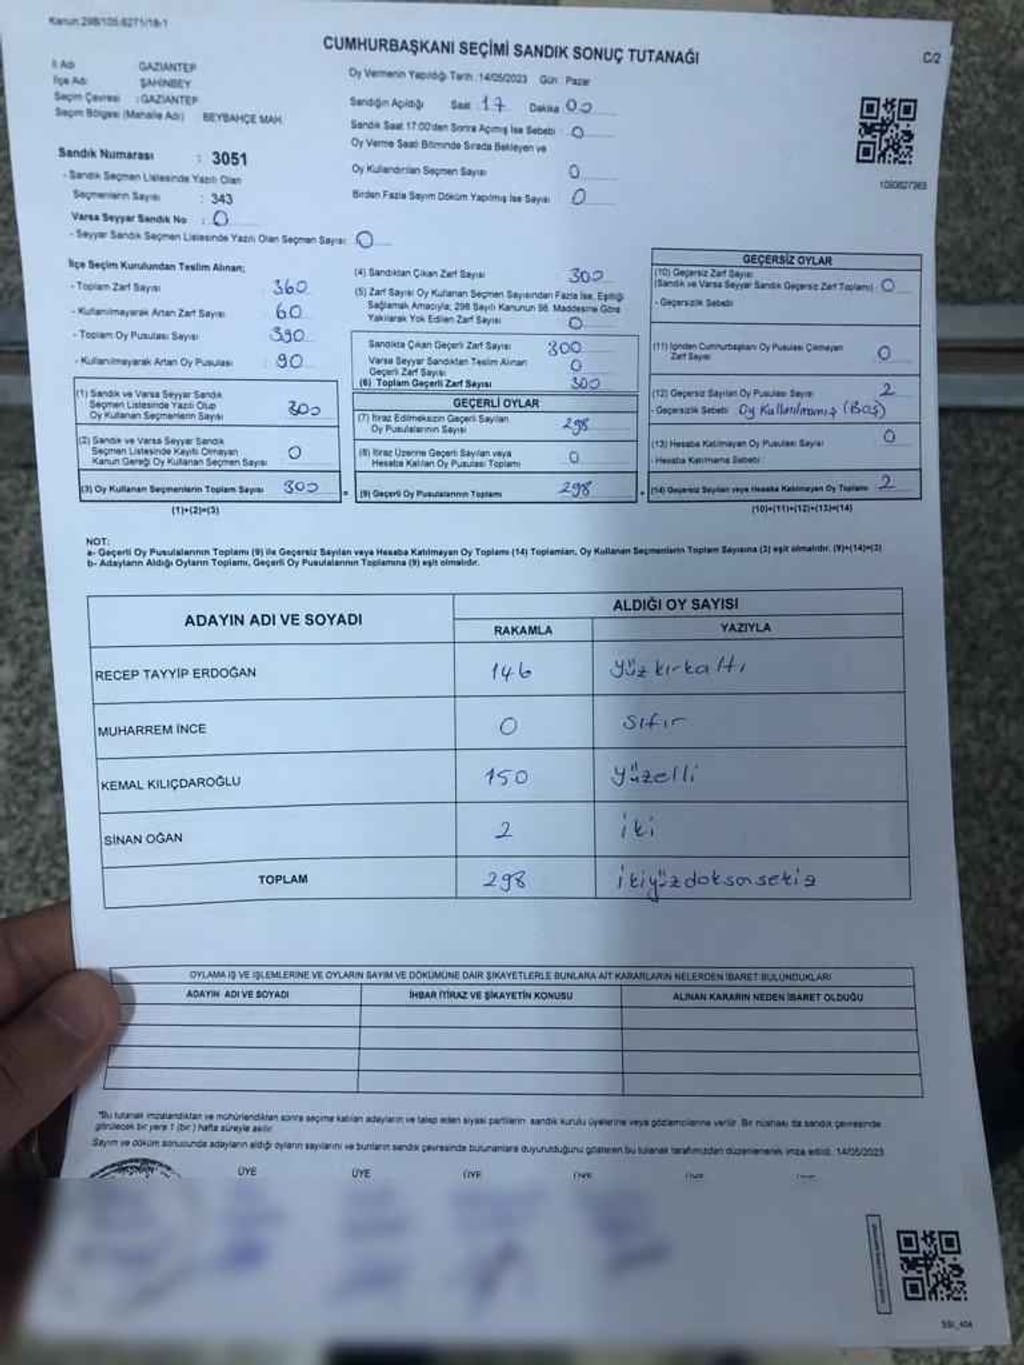 Kanun 298/105.6271/18-1
CUMHURBAŞKANI SEÇİMİ SANDIK SONUÇ TUTANAĞI
C/2
İl Adı GAZİANTEP
İlçe Adı ŞAHİNBEY
Seçim Çevresi : GAZİANTEP
Seçim Bölgesi (Mahalle Adı) BEYBAHÇE MAH.
Sandık Numarası : 3051
- Sandık Seçmen Listesinde Yazılı Olan
Seçmenlerin Sayısı : 343
Varsa Seyyar Sandık No : 0
- Seyyar Sandık Seçmen Listesinde Yazılı Olan Seçmen Sayısı: 0
Oy Vermenin Yapıldığı Tarih : 14/05/2023 Gün : Pazar
Sandığın Açıldığı Saat : 17 Dakika 00
Sandık Saat 17:00'den Sonra Açımış İse Sebebi : 0
Oy Verme Saati Bitiminde Sırada Bekleyen ve
Oy Kullandırılan Seçmen Sayısı 0
Birden Fazla Sayım Döküm Yapılmış İse Sayısı 0
İlçe Seçim Kurulundan Teslim Alınan;
- Toplam Zarf Sayısı 360
- Kullanılmayarak Artan Zarf Sayısı 60
- Toplam Oy Pusulası Sayısı 390
- Kullanılmayarak Artan Oy Pusulası 90
(1) Sandık ve Varsa Seyyar Sandık
Seçmen Listesinde Yazılı Olup
Oy Kullanan Seçmenlerin Sayısı 300
(2) Sandık ve Varsa Seyyar Sandık
Seçmen Listesinde Kayıtlı Olmayan
Kanun Gereği Oy Kullanan Seçmen Sayısı 0
(3) Oy Kullanan Seçmenlerin Toplam Sayısı 300
(1)+(2)=(3)
(4) Sandıktan Çıkan Zarf Sayısı 300
(5) Zarf Sayısı Oy Kullanan Seçmen Sayısından Fazla İse, Eşitliği
Sağlamak Amacıyla; 298 Sayılı Kanunun 98. Maddesine Göre
Yakılarak Yok Edilen Zarf Sayısı 0
Sandıkta Çıkan Geçerli Zarf Sayısı 300
Varsa Seyyar Sandıktan Teslim Alınan
Geçerli Zarf Sayısı 0
(6) Toplam Geçerli Zarf Sayısı 300
GEÇERLİ OYLAR
(7) İtiraz Edilmeksizin Geçerli Sayılan
Oy Pusulalarının Sayısı 298
(8) İtiraz Üzerine Geçerli Sayılan veya
Hesaba Katılan Oy Pusulası Toplamı 0
(9) Geçerli Oy Pusulalarının Toplamı 298
GEÇERSİZ OYLAR
(10) Geçersiz Zarf Sayısı
(Sandık ve Varsa Seyyar Sandık Geçersiz Zarf Toplamı) 0
- Geçersizlik Sebebi
(11) İçinden Cumhurbaşkanı Oy Pusulası Çıkmayan
Zarf Sayısı 0
(12) Geçersiz Sayılan Oy Pusulası Sayısı 2
- Geçersizlik Sebebi Oy Kullanılmamış (Boş)
(13) Hesaba Katılmayan Oy Pusulası Sayısı 0
- Hesaba Katılmama Sebebi :
(14) Geçersiz Sayılan veya Hesaba Katılmayan Oy Toplamı 2
(10)+(11)+(12)+(13)=(14)
NOT:
a- Geçerli Oy Pusulalarının Toplamı (9) ile Geçersiz Sayılan veya Hesaba Katılmayan Oy Toplamı (14) Toplamları, Oy Kullanan Seçmenlerin Toplam Sayısına (3) eşit olmalıdır. (9)+(14)=(3)
b- Adayların Aldığı Oyların Toplamı, Geçerli Oy Pusulalarının Toplamına (9) eşit olmalıdır.
ADAYIN ADI VE SOYADI
ALDIĞI OY SAYISI
RAKAMLA YAZIYLA
RECEP TAYYİP ERDOĞAN 146 yüzkırkaltı
MUHARREM İNCE 0 sıfır
KEMAL KILIÇDAROĞLU 150 yüzelli
SİNAN OĞAN 2 iki
TOPLAM 298 ikiyüzdoksansekiz
OYLAMA İŞ VE İŞLEMLERİNE VE OYLARIN SAYIM VE DÖKÜMÜNE DAİR ŞİKAYETLERLE BUNLARA AİT KARARLARIN NELERDEN İBARET BULUNDUKLARI
ADAYIN ADI VE SOYADI İHBAR İTİRAZ VE ŞİKAYETİN KONUSU ALINAN KARARIN NEDEN İBARET OLDUĞU
*Bu tutanak imzalandıktan ve mühürlendikten sonra seçime katılan adayların ve talep eden siyasi partilerin sandık kurulu üyelerine veya gözlemcilerine verilir. Bir nüshası da sandık çevresinde
görülecek bir yere 1 (bir) hafta süreyle asılır.
Sayım ve döküm sonucunda adayların aldığı oyların sayılarını ve bunların sandık çevresinde bulunanlara duyurulduğunu gösteren bu tutanak tarafımızdan düzenlenerek imza edildi. 14/05/2023
ÜYE ÜYE ÜYE ÜYE